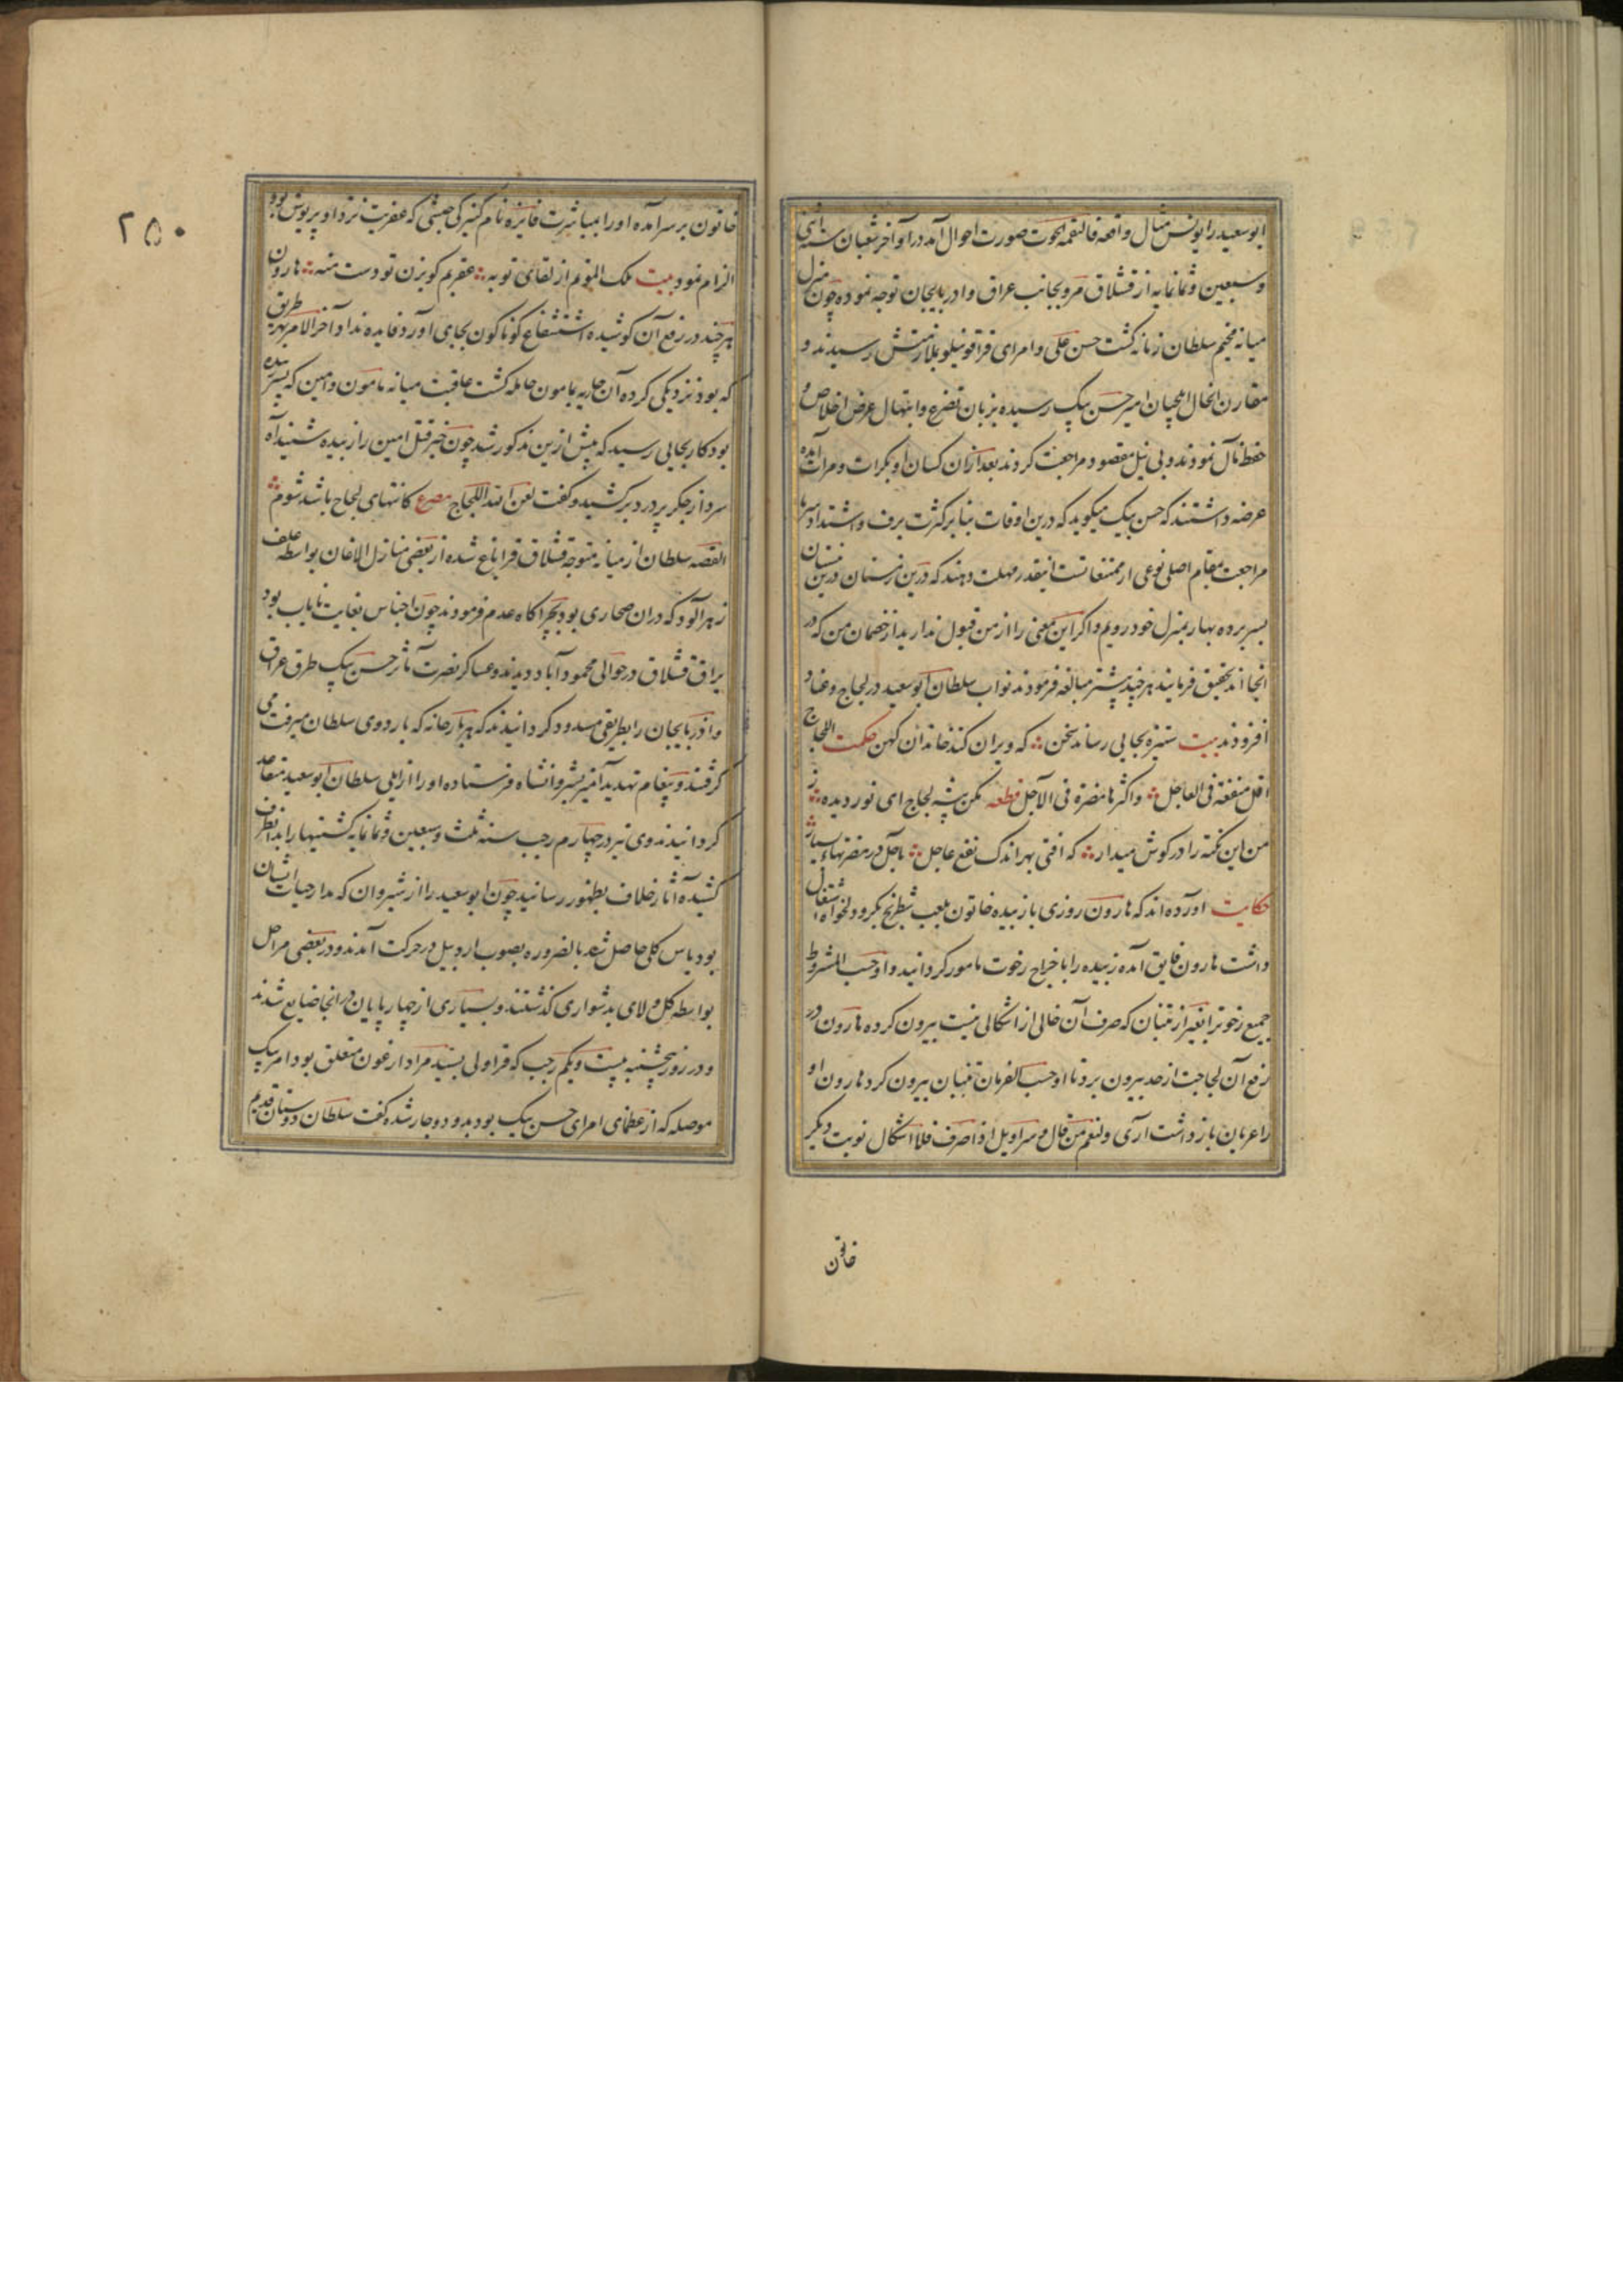 ابوسعید را یونس مثال واقعه فالتقمه الحوت صورت احوال آمد در اواخر شعبان سنه اثنی
وسبعین وثمانمایه از قشلاق مرو بجانب عراق واذربایجان توجه نموده چون منزل
میانه مخیم سلطان زمانه کشت حسن علی وامرای قراقوینلو بملازمتش رسیدند و
مقارن الحال ایلچیان امیر حسن بیک رسیده بزبان تضرع وابتهال عرض اخلاص و
حفظ مآل نمودند وبی نیل مقصود مراجعت کردند بعد ازان کسان او بکرات ومرات آمده
عرضه داشتند که حسن بیک میکوید که درین اوقات بنا بر کثرت برف واشتداد سرما
مراجعت بمقام اصلی نوعی از ممتنعاتست اینقدر مهلت دهند که درین زمستان درین
بسر برده بهار بمنزل خود رویم واکر این معنی را از من قبول ندارید از خصمان من که در
انجا اند تحقیق فرمایند هرچند پیشتر مبالغه فرمودند نواب سلطان ابوسعید در لجاج وعناد
افزودند بیت ستیزه بجایی رساند سخن که ویران کند خاندان کهن حکمت اللجاج
اقل منفعة فی العاجل واکثرها مضرة فی الآجل قطعه مکن پیشه لجاج ای نور دیده ز
من این نکته را در کوش میدار که افتی بهر اندک نفع عاجل بآجل در مضرتهاء بسیار
حکایت اورده اند که هارون روزی با زبیده خاتون بلعب شطرنج بکرو دلخواه اشتغال
داشت هارون فایق آمده زبیده را باخراج رخوت مامور کردانید واو حسب المشروط
جمیع رخوترا بغیر از تنبان که صرف آن خالی از اشکالی نیست بیرون کرده هارون در
رفع آن لجاجت از حد بیرون برد تا او حسب الفرمان تنبان بیرون کرد هارون او
را عریان باز داشت اری ولنعم من قال وسراویل اذا صرف فلا اشکال نوبت دیکر
خاتون
۲۵۰
خاتون بر سر امده او را بمباشرت فایزه نام کنیزکی حبشی که عفریت نزد او پریوش بود
الزام نمود بیت ملک الموتم از لقای تو به عقربم کو بزن تو دست منه هارون
هرچند در رفع آن کوشیده استشفاع کوناکون بجای آورد فایده نداد آخر الامر بهر طریق
که بود نزدیکی کرده آن جاریه بمامون حامله کشت عاقبت میانه مامون وامین که پسر زبیده
بود کار بجایی رسید که پیش ازین مذکور شد چون خبر قتل امین را زبیده شنید آه
سرد از جکر پر درد برکشید وکفت لعن الله اللجاج مصرع کانتهای لجاج باشد شوم
القصه سلطان از میانه متوجه قشلاق قراباغ شده از بعضی منازل الاغان بواسطه علف
زهرآلود که دران صحاری بود بچراکاه عدم فرمودند چون اجناس بغایت نایاب بود
یراق قشلاق در حوالی محمودآباد دیدند وعساکر نصرت مآثر حسن بیک طرق عراق
واذربایجان را بطریقی مسدود کردانیدند که هر بارخانه که باردوی سلطان میرفت می
کرفتند وپیغام تهدید آمیز بشروانشاه فرستاده او را از ایلی سلطان ابوسعید متقاعد
کردانیدند وی نیز در چهارم رجب سنه ثلث وسبعین وثمانمایه کشتیها را بدانطرف
کشیده آثار خلاف بظهور رسانید چون ابوسعید را از شیروان که مدار حیات ایشان
بود یاس کلی حاصل شد بالضروره بصوب اردبیل در حرکت آمدند ودر بعضی مراحل
بواسطه کل ولای بدشواری کذشتند وبسیاری از چهارپایان در انجا ضایع شدند
ودر روز پنجشنبه بیست ویکم رجب که قراولی بسید مراد ارغون متعلق بود امیر بیک
موصله که از عظمای امرای حسن بیک بود بدو دوچار شده کفت سلطان دوستان قدیم